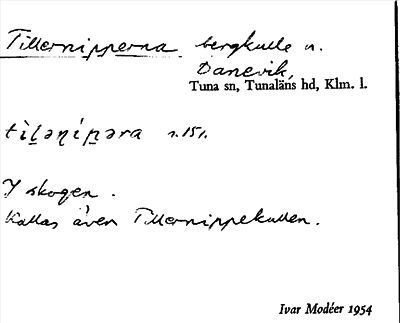 Tillernipperna bergkulle n.
Danevik,
Tuna sn, Tunaläns hd, Klm. l.
s. 151.
I skogen.
Kallas även Tillernippekullen.
Ivar Modéer 1954